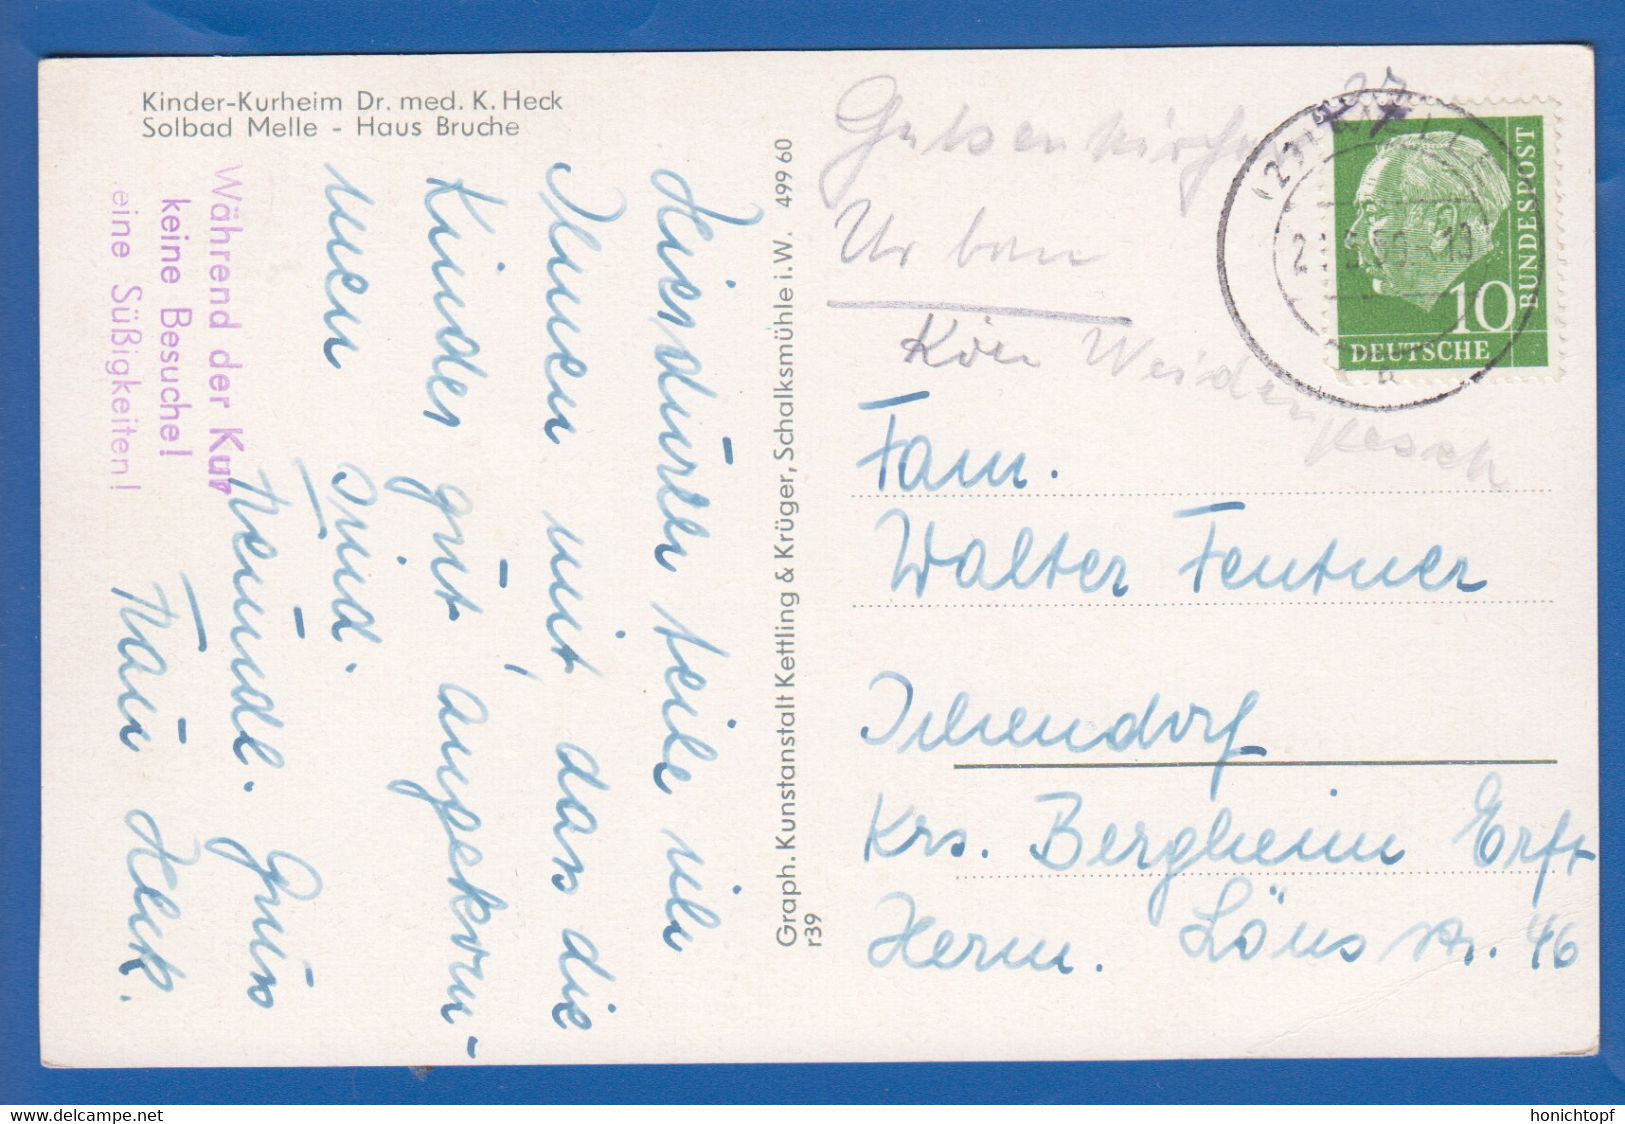 Kinder-Kurheim Dr. med. K. Heck
Solbad Melle - Haus Bruche
Während der Kur
keine Besuche!
eine Süßigkeiten!
Hierdurch teile ich
Ihnen mit dass die
Kinder gut angekom-
men sind.
Freundl. Gruss
Frau Heck.
Graph. Kunstanstalt Kettling & Krüger, Schalksmühle i.W. 499 60
r39
Urban
Köln Weidenpesch
MELLE
DEUTSCHE
BUNDESPOST
10
Fam.
Walter Fentner
Ichendorf
Krs. Bergheim Erft
Herm. Löns str. 46
delcampe.net
honichtopf